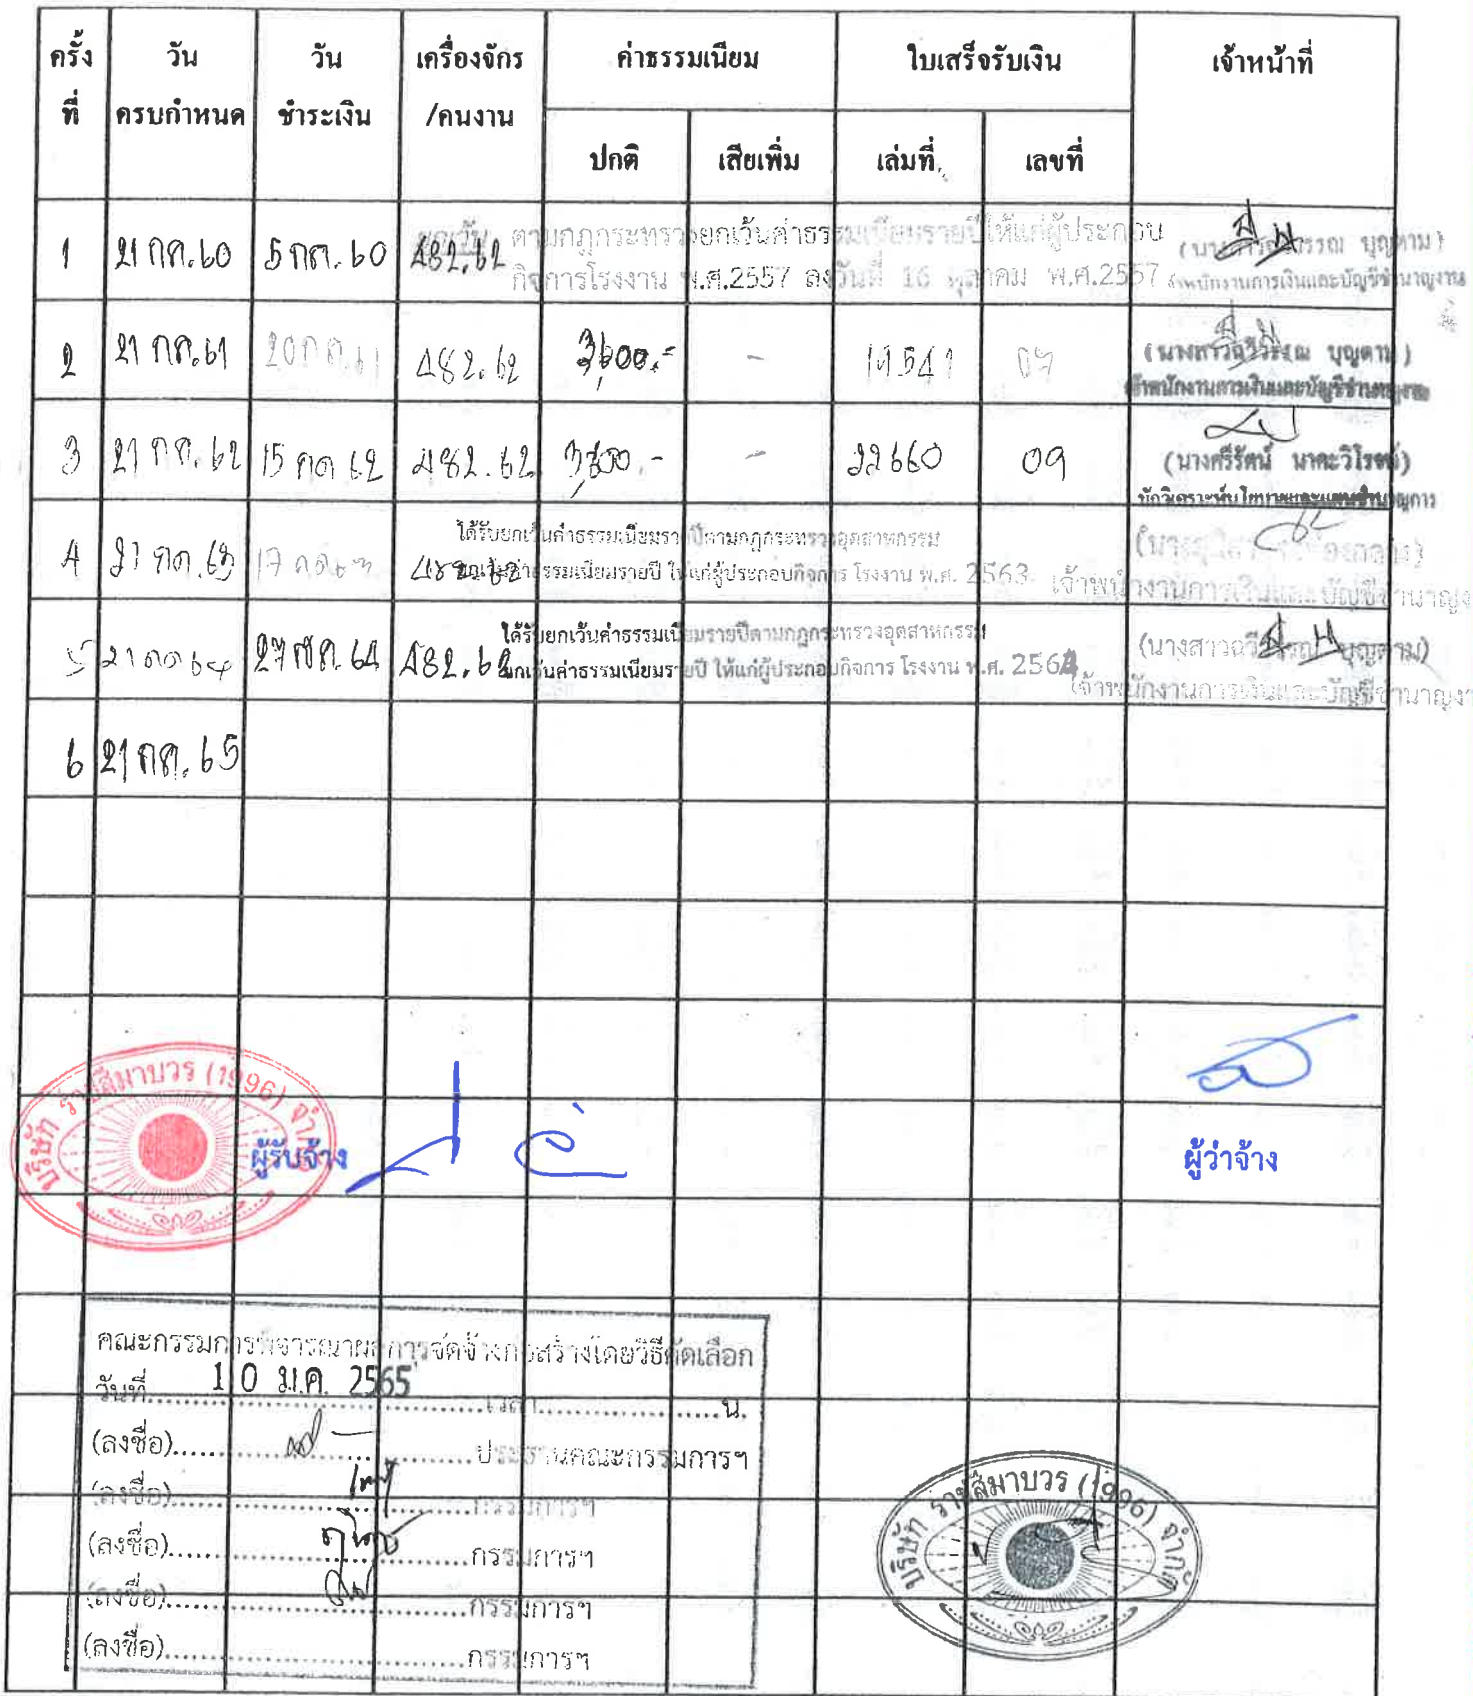 ครั้งที่ วันครบกำหนด วันชำระเงิน เครื่องจักร/คนงาน ค่าธรรมเนียม ใบเสร็จรับเงิน เจ้าหน้าที่
ปกติ เสียเพิ่ม เล่มที่ เลขที่
1 21 กค.60 5 กค.60 482.62 ยกเว้น ตามกฎกระทรวงยกเว้นค่าธรรมเนียมรายปีให้แก่ผู้ประกอบ
กิจการโรงงาน พ.ศ.2557 ลงวันที่ 16 ตุลาคม พ.ศ.2557
บุญตาม)
เจ้าพนักงานการเงินและบัญชีชำนาญงาน
2 21 กค.61 20 กค.61 482.62 3,600.- - 19541 07
(นางสาวฉวีวรรณ บุญตาม)
เจ้าพนักงานการเงินและบัญชีชำนาญงาน
3 21 กค.62 15 กค 62 482.62 3,600.- - 22660 09
(นางศรีรัตน์ นาคะวิโรจน์)
นักวิเคราะห์นโยบายและแผนชำนาญการ
4 21 กค.63 17 กค 63 482.62 ได้รับยกเว้นค่าธรรมเนียมรายปีตามกฎกระทรวงอุตสาหกรรม
ยกเว้นค่าธรรมเนียมรายปี ให้แก่ผู้ประกอบกิจการ โรงงาน พ.ศ. 2563
เจ้าพนักงานการเงินและบัญชีชำนาญง
5 21 กค 64 482.62 ได้รับยกเว้นค่าธรรมเนียมรายปีตามกฎกระทรวงอุตสาหกรรม
ยกเว้นค่าธรรมเนียมรายปี ให้แก่ผู้ประกอบกิจการ โรงงาน พ.ศ. 2564
(นางสาวฉวีวรรณ บุญตาม)
เจ้าพนักงานการเงินและบัญชีชำนาญงา
6 21 กค.65
บริษัท ราชสีมาบวร (1996) จำกัด
ผู้รับจ้าง
ผู้ว่าจ้าง
คณะกรรมการพิจารณาผลการจัดจ้างก่อสร้างโดยวิธีคัดเลือก
วันที่ 10 ม.ค. 2565 เวลา....................น.
(ลงชื่อ)....................ประธานคณะกรรมการฯ
(ลงชื่อ)....................กรรมการฯ
(ลงชื่อ)....................กรรมการฯ
(ลงชื่อ)....................กรรมการฯ
(ลงชื่อ)....................กรรมการฯ
บริษัท ราชสีมาบวร (1996) จำกัด